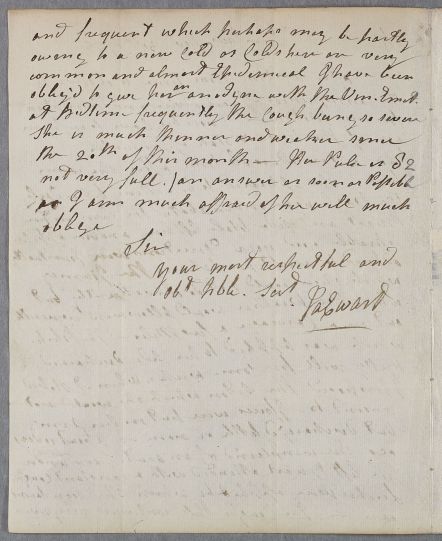 and frequent which perhaps may be partly
owing to a new Cold as Colds here are very
common and almost Epidemical I have been
obley'd to give her an anodyne with the Vin. Emet.
at Bedtime frequently the Cough being so severe
She is much thinner and weaker since
the 20th of this month — Her Pulse is 82
not very full. / an answer as soon as Possible
as I am much affraed of her will much
oblige
Sir
your most respectful and
obt hble. Sert
Ja Ewart